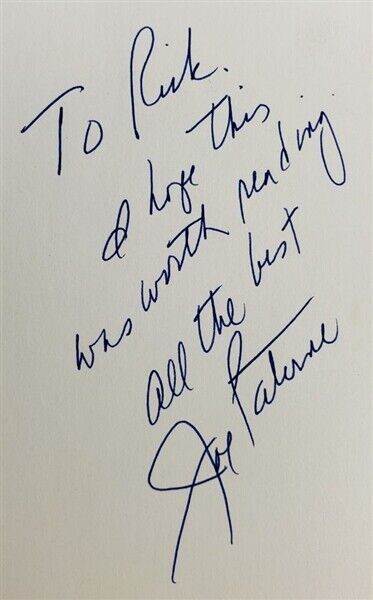 To Rick.
I hope this
was worth reading
all the best
Joe Paterno